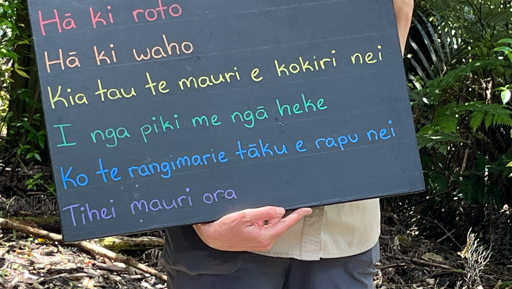 Hā ki roto
Hā ki waho
Kia tau te mauri e kokiri nei
I nga piki me ngā heke
Ko te rangimarie tāku e rapu nei
Tihei mauri ora